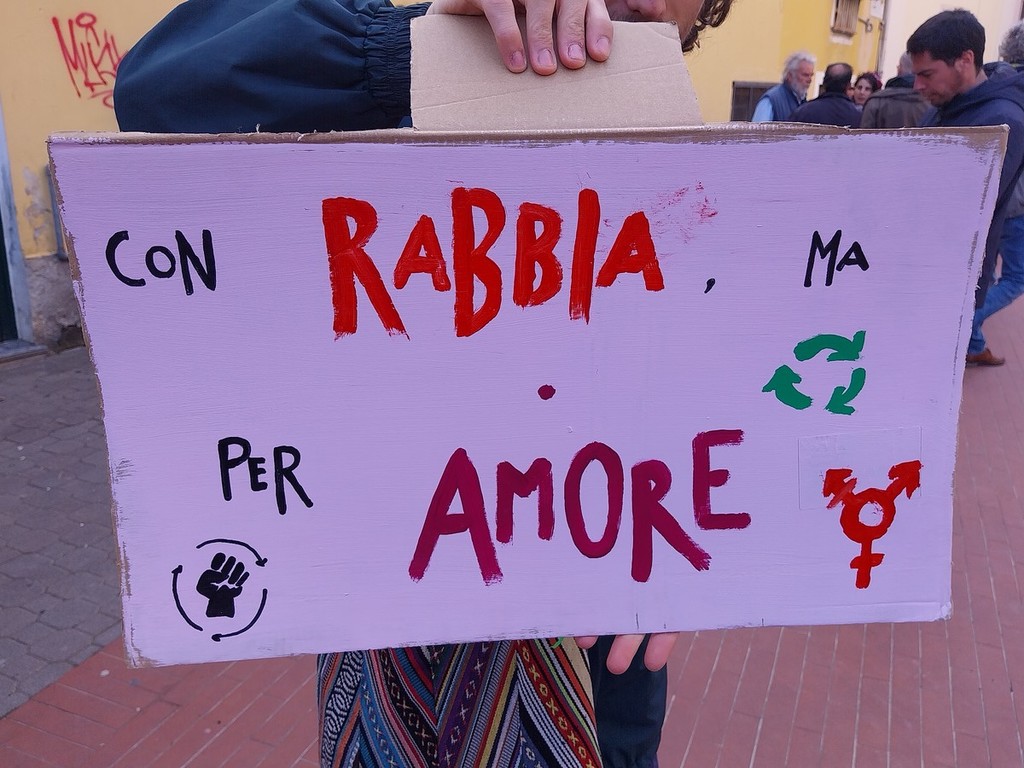 CON RABBIA, MA
PER AMORE